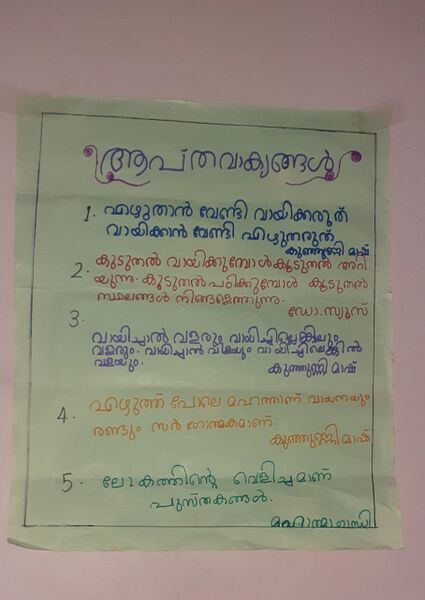 ആപ്തവാക്യങ്ങൾ
1. എഴുതാൻ വേണ്ടി വായിക്കരുത്
വായിക്കാൻ വേണ്ടി എഴുതരുത്
കുഞ്ഞുണ്ണി മാഷ്
2. കൂടുതൽ വായിക്കുമ്പോൾ കൂടുതൽ അറി
യുന്നു. കൂടുതൽ പഠിക്കുമ്പോൾ കൂടുതൽ
സ്ഥലങ്ങൾ നിങ്ങളെത്തുന്നു.
ഡോ.സ്യൂസ്
3.
വായിച്ചാൽ വളരും വായിച്ചില്ലെങ്കിലും
വളരും. വായിച്ചാൽ വിളയും വായിച്ചില്ലെങ്കിൽ
വളയും.
കുഞ്ഞുണ്ണി മാഷ്
4. എഴുത്ത് പോലെ മഹത്താണ് വായനയും
രണ്ടും സർഗാത്മകമാണ്.
കുഞ്ഞുണ്ണി മാഷ്
5. ലോകത്തിന്റെ വെളിച്ചമാണ്
പുസ്തകങ്ങൾ.
മഹാത്മാഗാന്ധി